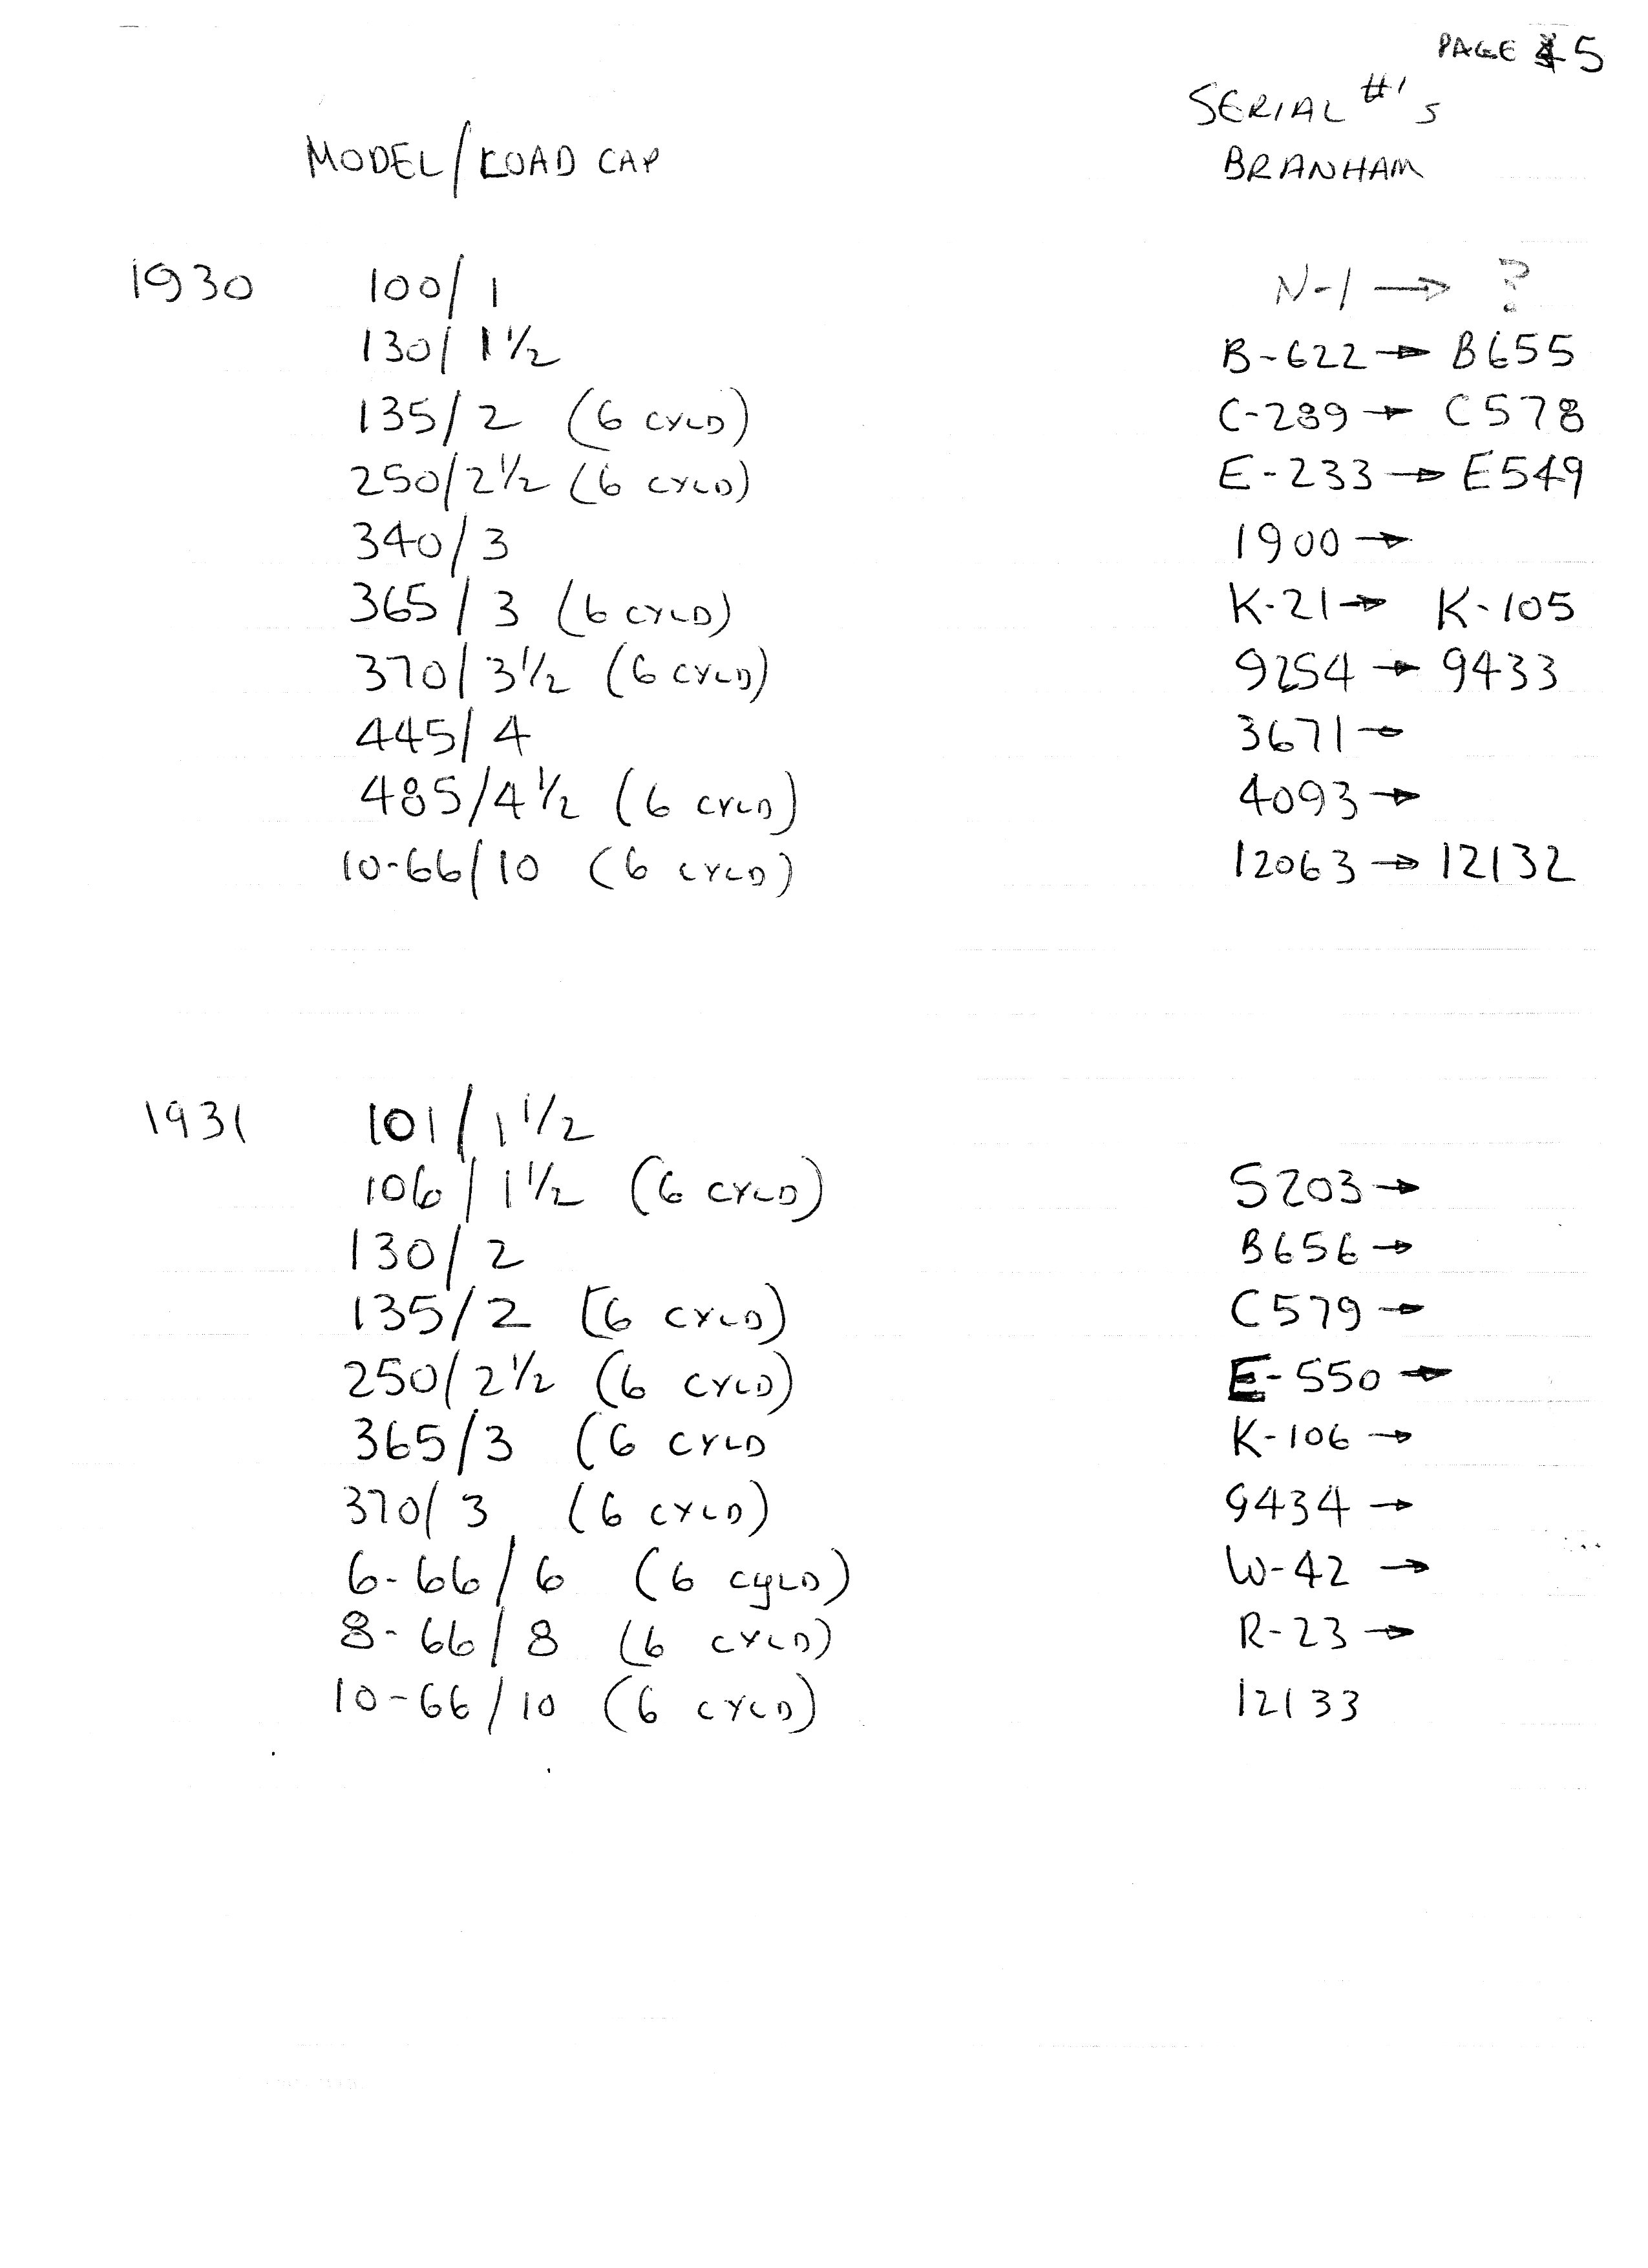 PAGE 5
SERIAL #'s
MODEL/LOAD CAP BRANHAM
1930 100/1 N-1 → ?
130/1½ B-622 → B655
135/2 (6 CYLD) C-289 → C578
250/2½ (6 CYLD) E-233 → E549
340/3 1900 →
365/3 (6 CYLD) K-21 → K-105
370/3½ (6 CYLD) 9254 → 9433
445/4 3671 →
485/4½ (6 CYLD) 4093 →
10-66/10 (6 CYLD) 12063 → 12132
1931 101/1½
106/1½ (6 CYLD) S203 →
130/2 B656 →
135/2 (6 CYLD) C579 →
250/2½ (6 CYLD) E-550 →
365/3 (6 CYLD K-106 →
370/3 (6 CYLD) 9434 →
6-66/6 (6 CyLD) W-42 →
8-66/8 (6 CYLD) R-23 →
10-66/10 (6 CYLD) 12133